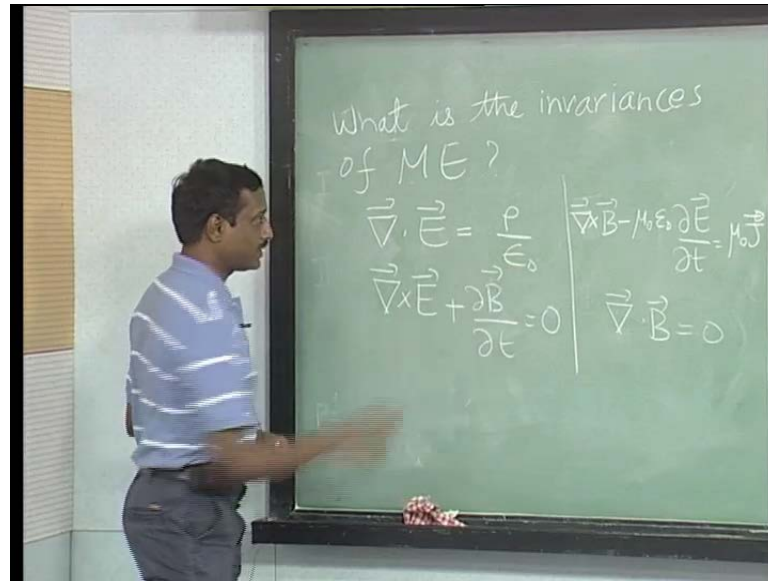 What is the invariances
of ME?
∇⃗ · E⃗ = ρ/ε₀
∇⃗ × E⃗ + ∂B⃗/∂t = 0
∇⃗ × B⃗ − μ₀ε₀ ∂E⃗/∂t = μ₀J⃗
∇⃗ · B⃗ = 0